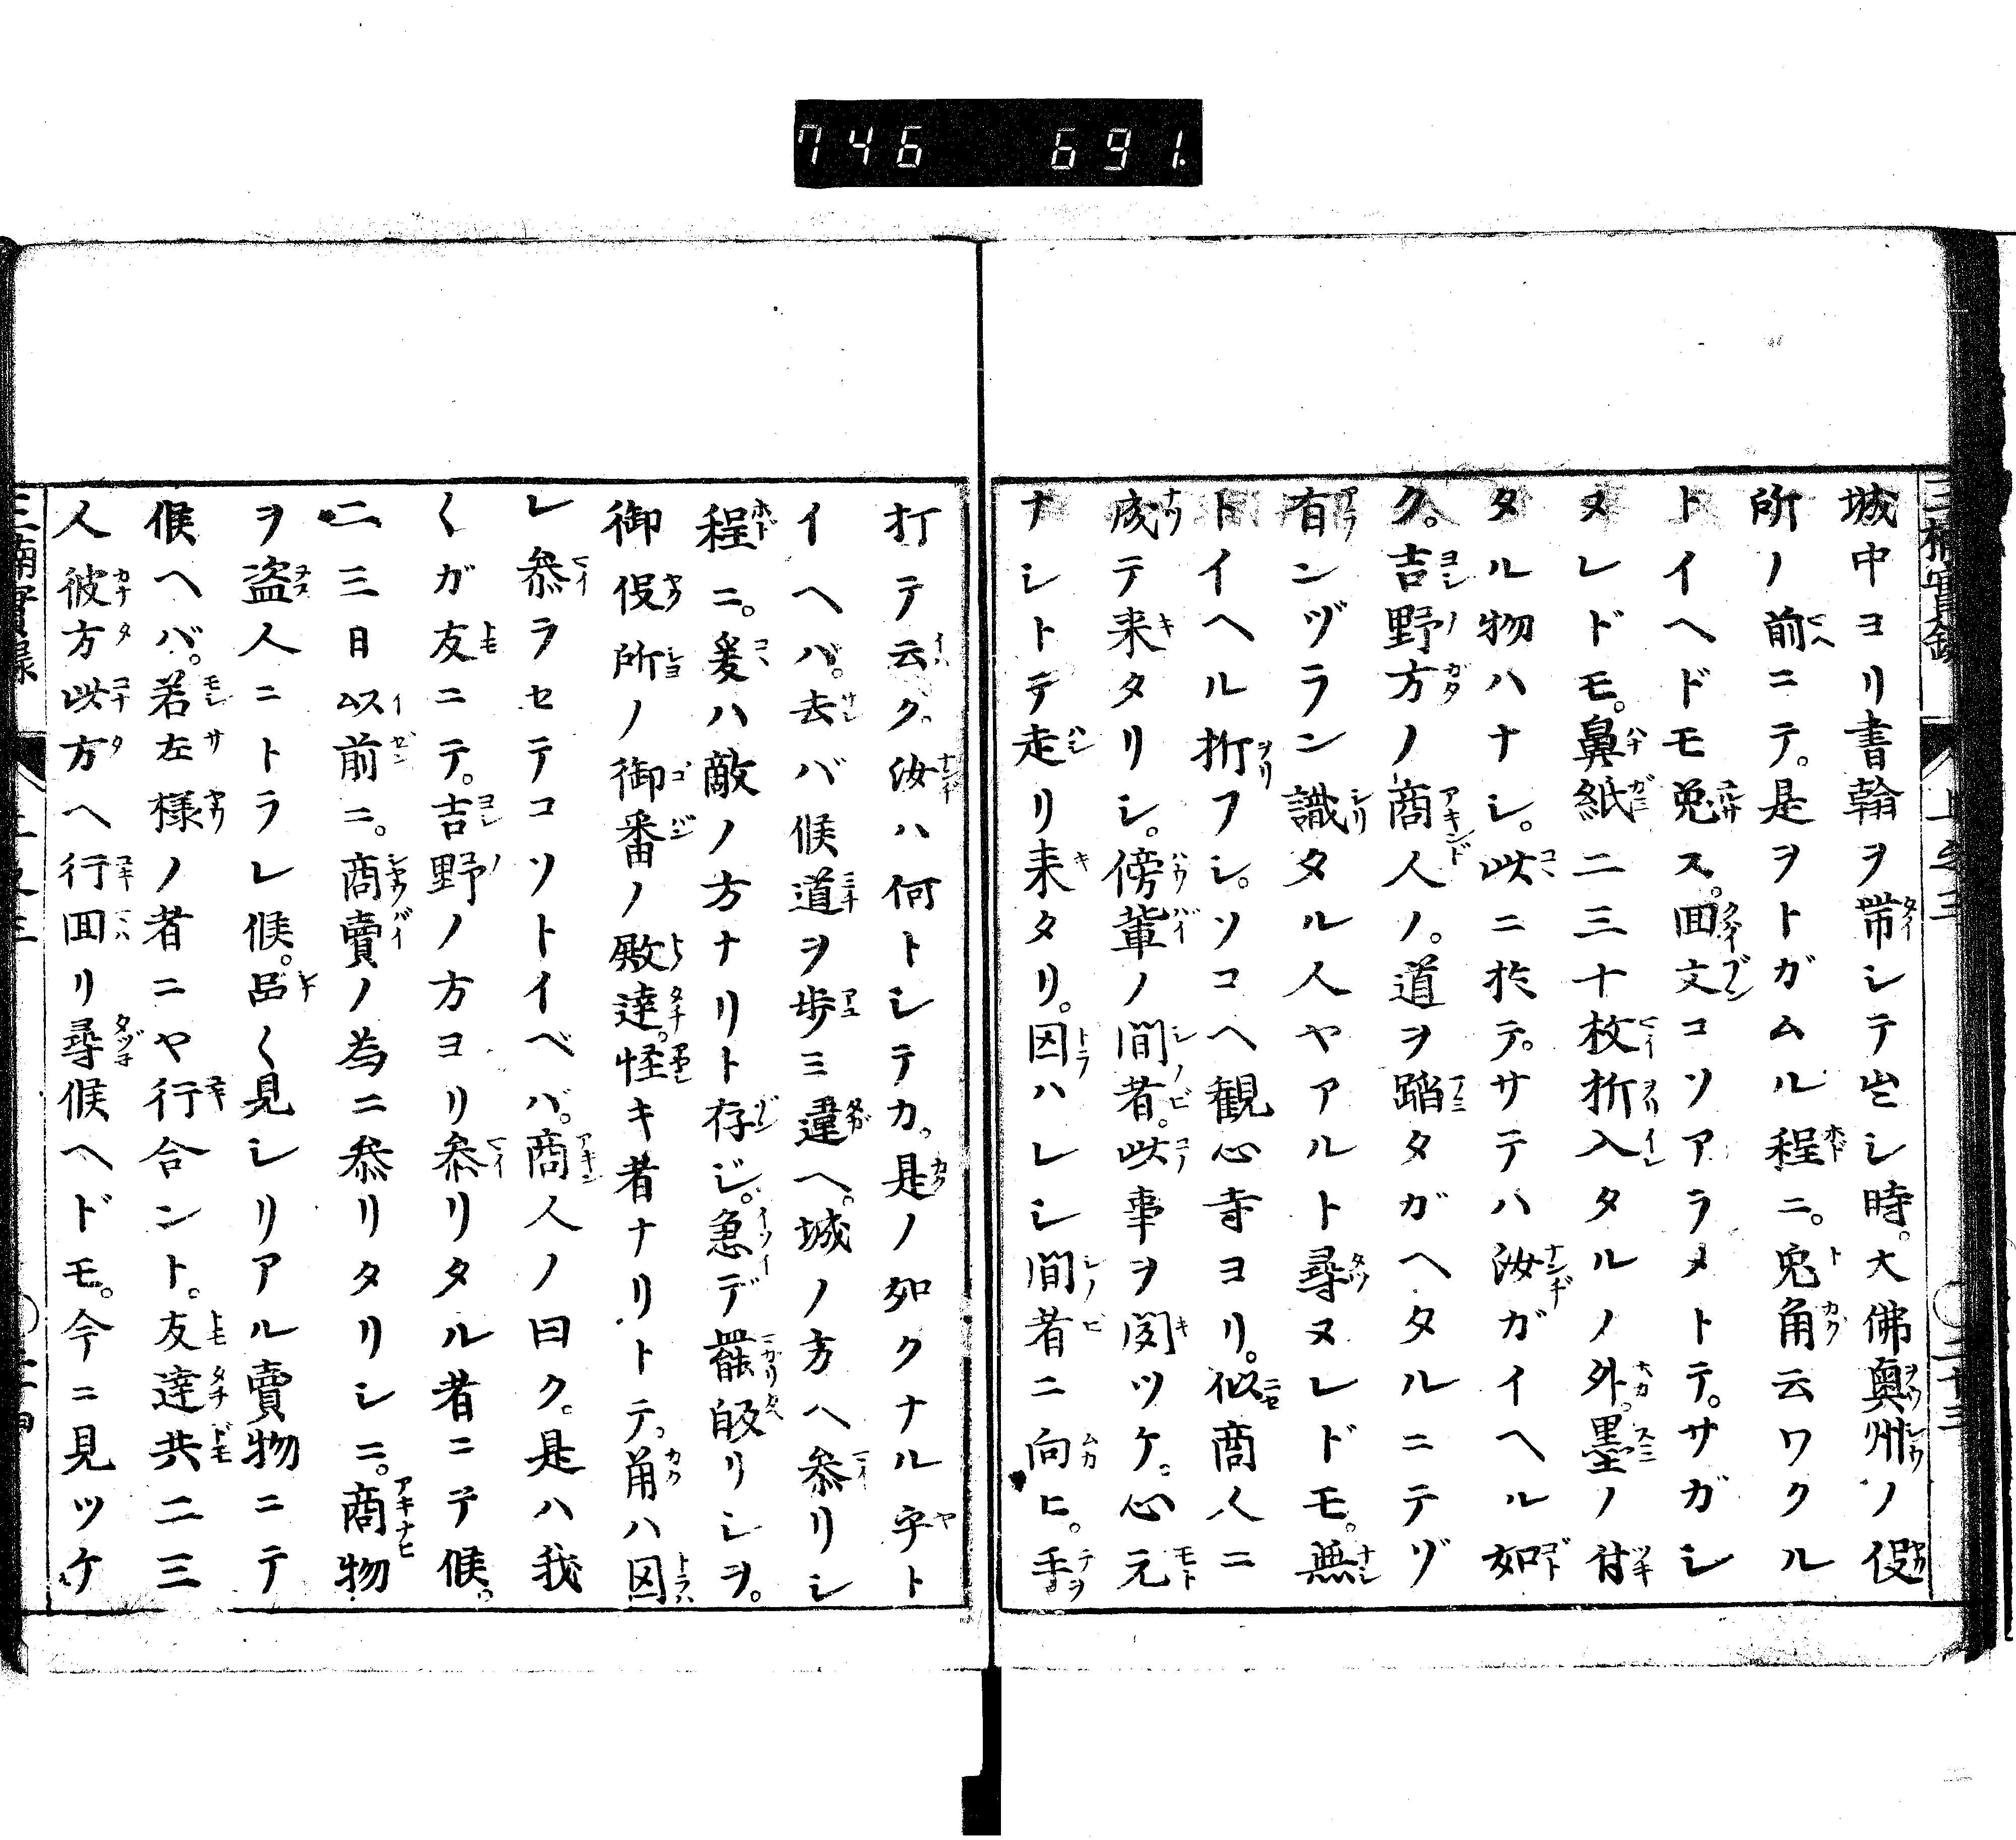 746 691
三楠實録
上之三
二十三
城中ヨリ書翰ヲ帶シテ出シ時。大佛奥州ノ役
所ノ前ニテ。是ヲトガムル程ニ。兎角云ワクル
トイヘドモ兔ス。回文コソアラメトテ。サガシ
ヌレドモ。鼻紙二三十枚折入タルノ外。墨ノ付
タル物ハナシ。此ニ於テ。サテハ汝ガイヘル如
ク。吉野方ノ商人ノ。道ヲ蹈タガヘタルニテゾ
有ンヅラン識タル人ヤアルト尋ヌレドモ。無
トイヘル折フシ。ソコヘ観心寺ヨリ。似商人ニ
成テ来タリシ。傍輩ノ間者。此事ヲ聞ツケ。心元
ナシトテ走リ来タリ。囚ハレシ間者ニ向ヒ。手
打テ云ク。汝ハ何トシテカ。是ノ如クナル乎ト
イヘバ。去バ候道ヲ歩ミ違ヘ。城ノ方ヘ参リシ
程ニ。爰ハ敵ノ方ナリト存ジ。急デ罷皈リシヲ。
御役所ノ御番ノ殿達。怪キ者ナリトテ。角ハ囚
レ参ラセテコソトイベバ。商人ノ曰ク。是ハ我
〱ガ友ニテ。吉野ノ方ヨリ参リタル者ニテ候。
二三日以前ニ。商賣ノ為ニ参リタリシニ。商物
ヲ盗人ニトラレ候。㕵〱見シリアル賣物ニテ
候ヘバ。若左様ノ者ニヤ行合ント。友達共二三
人彼方此方ヘ行回リ尋候ヘドモ。今ニ見ツケ
三楠實録
上之三